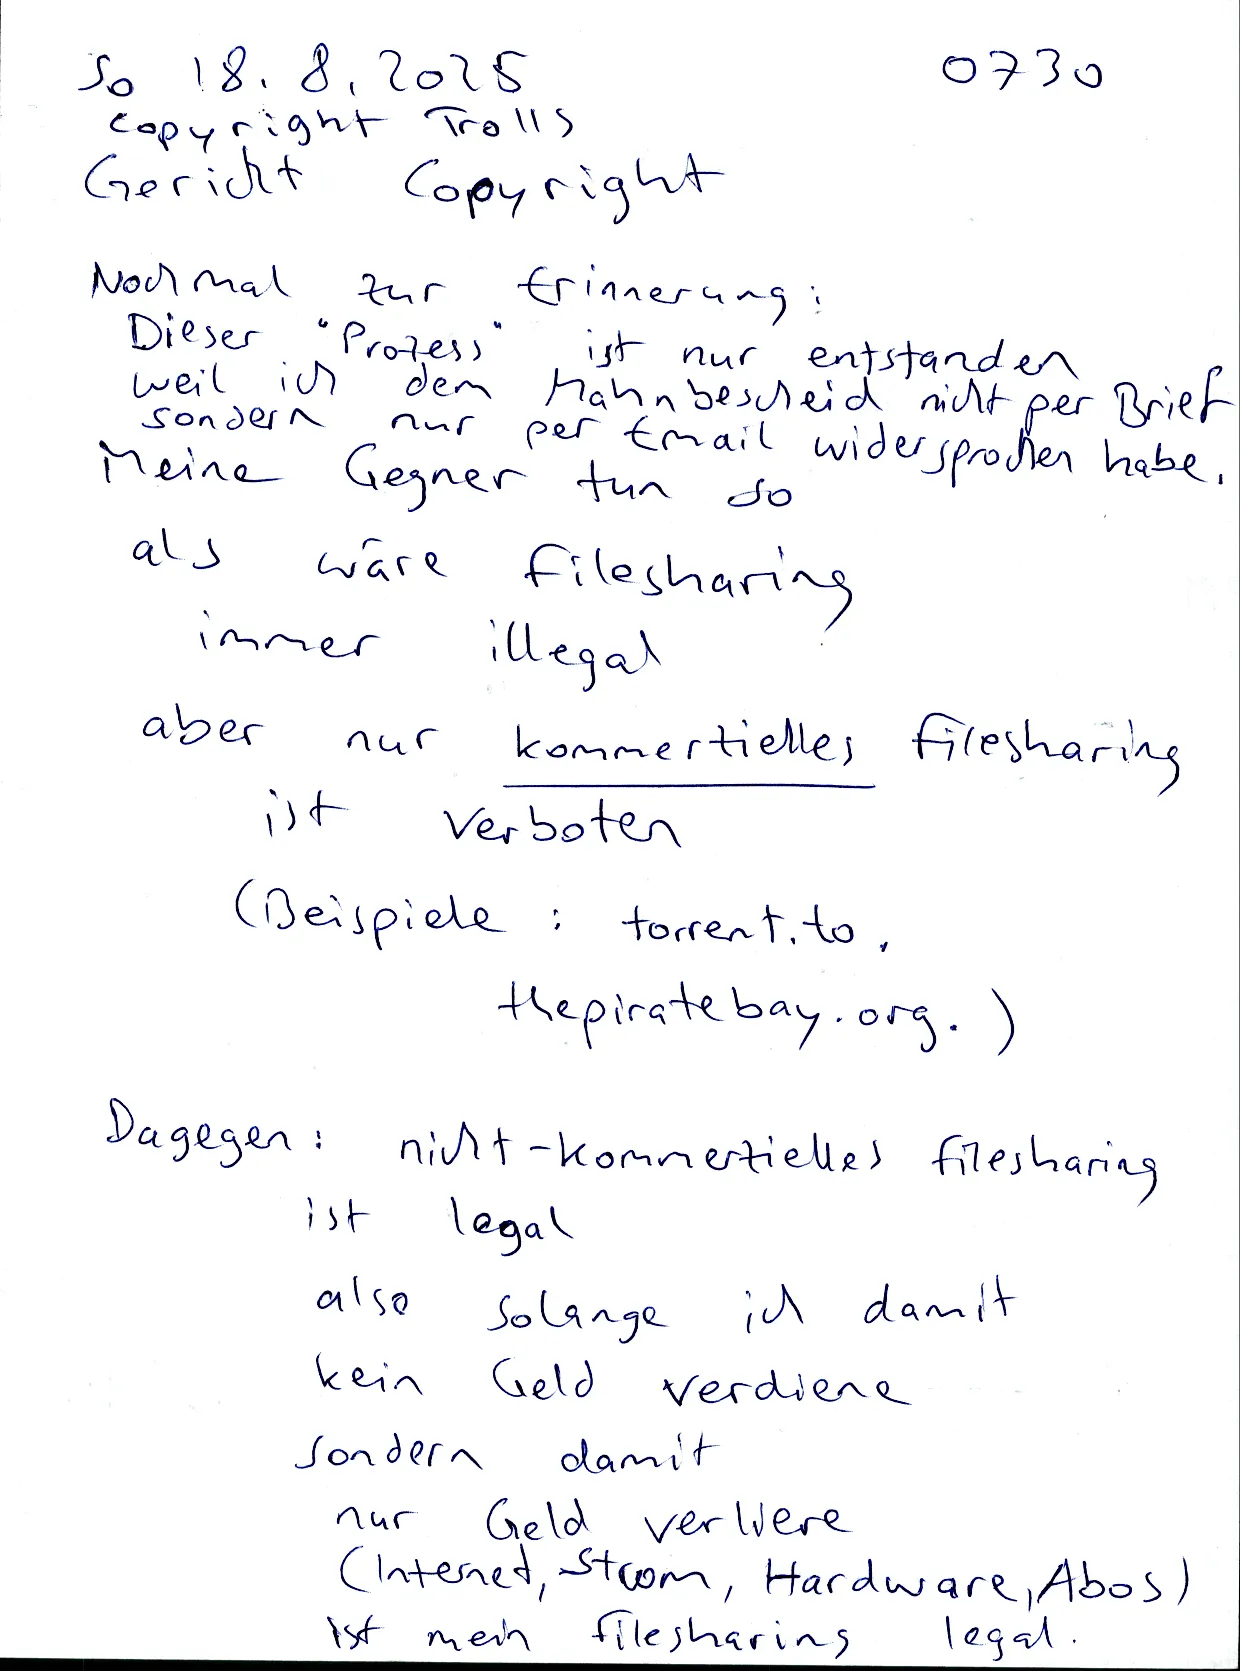 So 18. 8. 2025 0730
Copyright Trolls
Gericht Copyright
Nochmal zur Erinnerung:
Dieser "Prozess" ist nur entstanden
weil ich dem Mahnbescheid nicht per Brief
sondern nur per Email widersprochen habe.
Meine Gegner tun so
als wäre filesharing
immer illegal
aber nur kommertielles filesharing
ist verboten
(Beispiele : torrent.to,
thepiratebay.org. )
Dagegen : nicht-kommertielles filesharing
ist legal
also solange ich damit
kein Geld verdiene
sondern damit
nur Geld verliere
(Internet, Strom, Hardware, Abos)
ist mein filesharing legal.